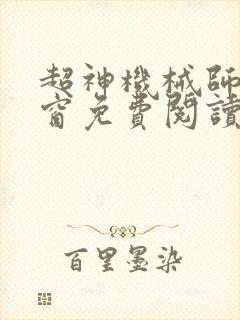 超神機械師
窗免費閱讀
百里墨染